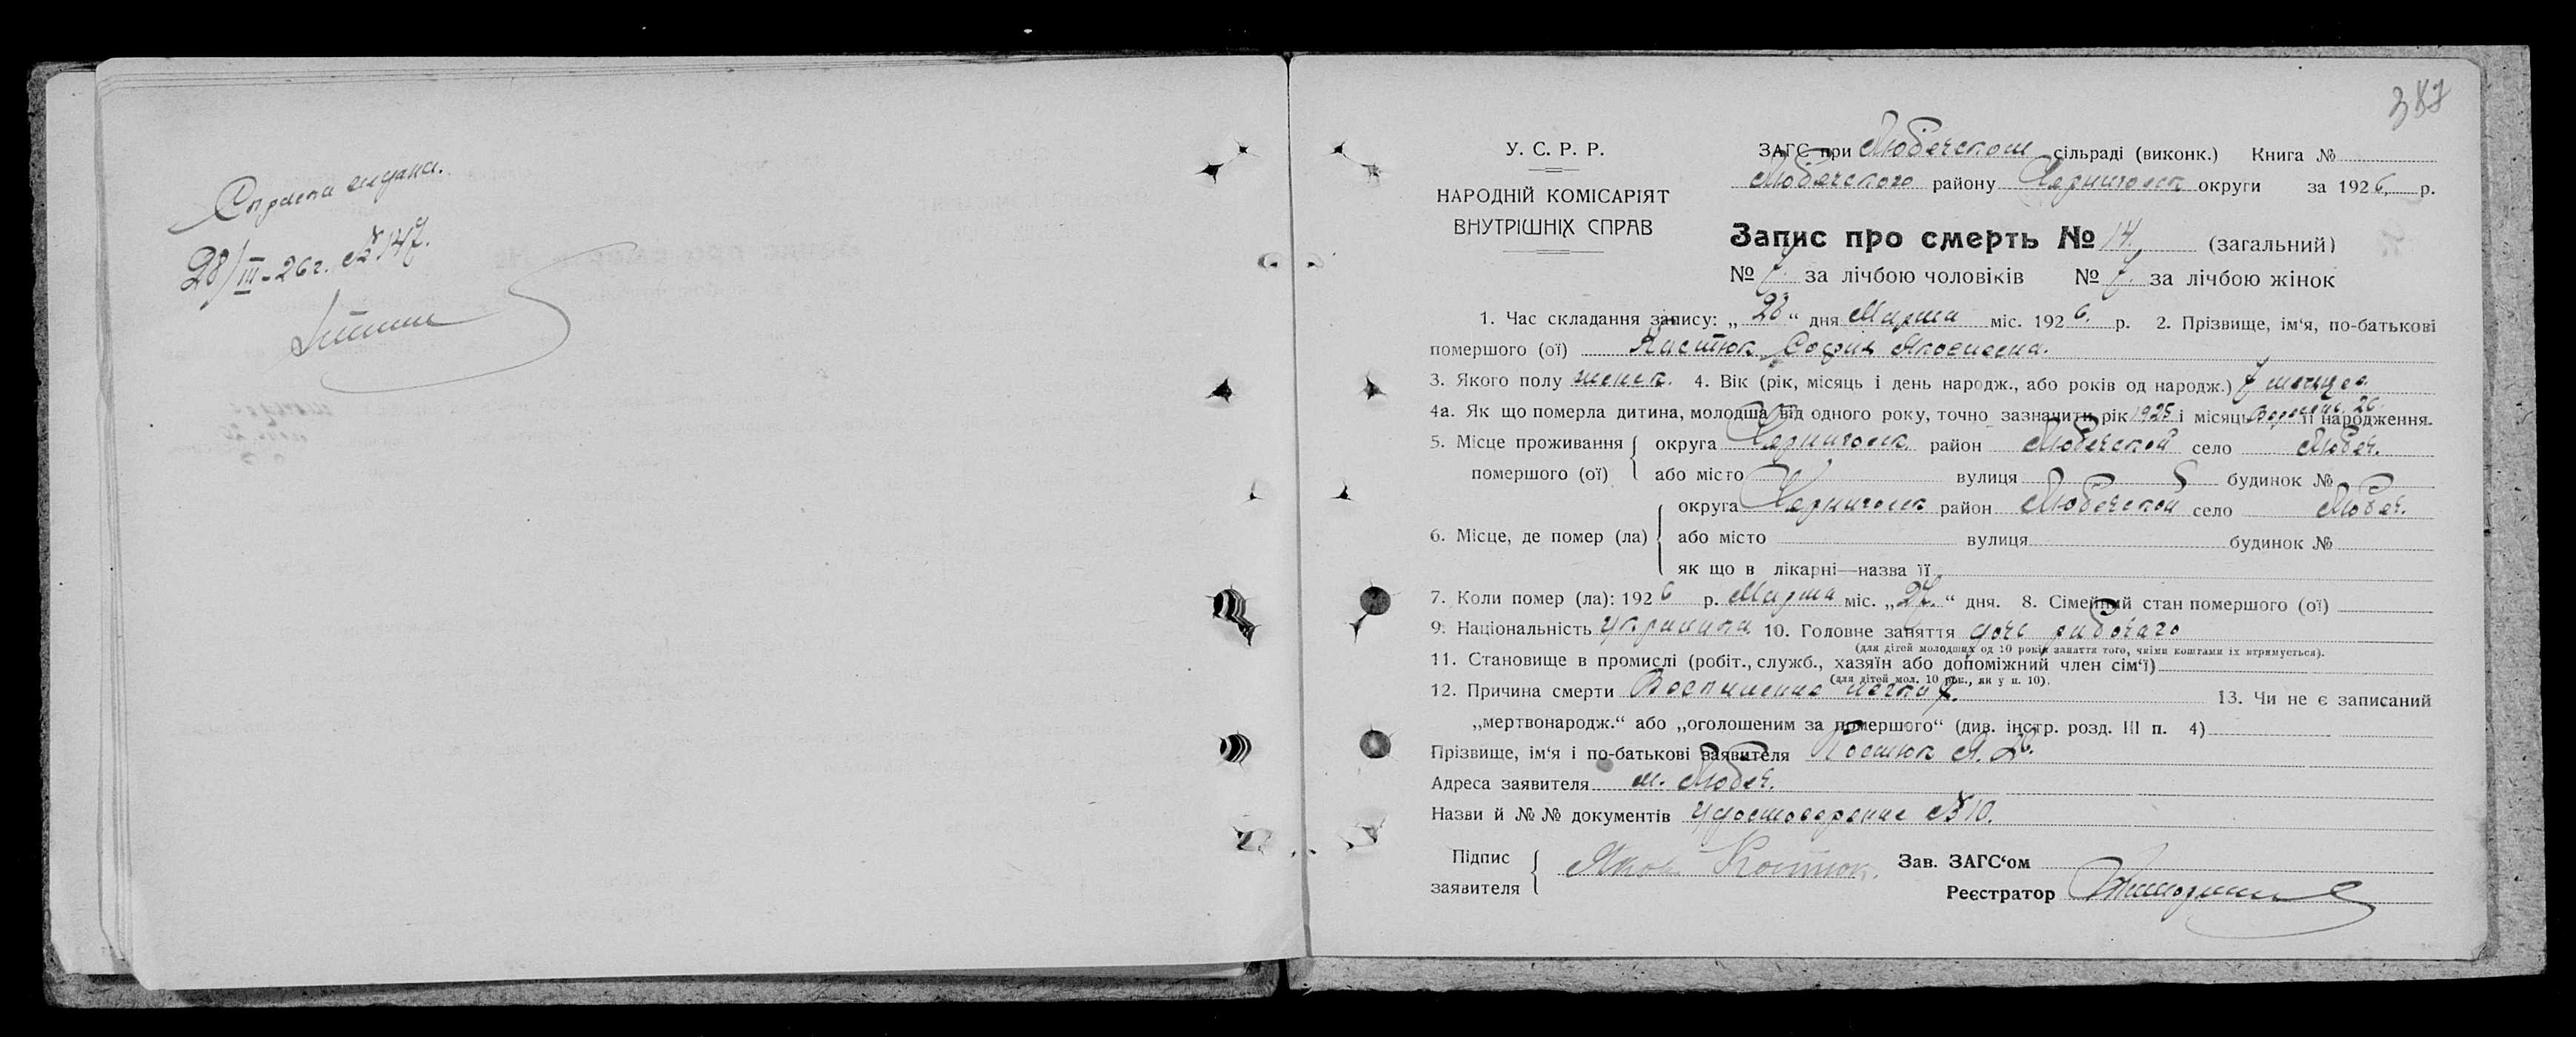 Справка выдана.
28/III-26 г. № 147.
387
У. С. Р. Р.
НАРОДНІЙ КОМІСАРІЯТ
ВНУТРІШНІХ СПРАВ
ЗАГС при Любечском сільраді (виконк.) Книга №
Любечского району Черниговск округи за 1926 р.
Запис про смерть № 14. (загальний)
№ 7. за лічбою чоловіків № 7. за лічбою жінок
1. Час складання запису: „28“ дня Марта міс. 1926. р. 2. Прізвище, ім‘я, по-батькові
помершого (ої) Костюк София Яковлевна.
3. Якого полу женск. 4. Вік (рік, місяць і день народж., або років од народж.) 7 месяцев.
4а. Як що померла дитина, молодша від одного року, точно зазначити рік 1925 і місяць її народження.
5. Місце проживання помершого (ої) округа Черниговск. район Любечской село Любеч.
або місто вулиця будинок №
6. Місце, де помер (ла) округа Черниговск район Любечской село Любеч.
або місто вулиця будинок №
як що в лікарні—назва її
7. Коли помер (ла): 1926 р. Марта міс. „27.“ дня. 8. Сімейний стан помершого (ої)
9. Національність Украинка 10. Головне заняття дочь рабочаго
(для дітей молодших од 10 років заняття того, чиїми коштами їх втримується).
11. Становище в промислі (робіт., служб., хазяїн або допоміжний член сім‘ї)
(для дітей мол. 10 рок., як у п. 10).
12. Причина смерти Воспаление легких. 13. Чи не є записаний
„мертвонародж.“ або „оголошеним за помершого“ (див. інстр. розд. III п. 4)
Прізвище, ім‘я і по-батькові заявителя Костюк Я.
Адреса заявителя м. Любеч.
Назви й №№ документів Удостоверение № 10.
Підпис заявителя Яков Костюк. Зав. ЗАГС‘ом
Реєстратор